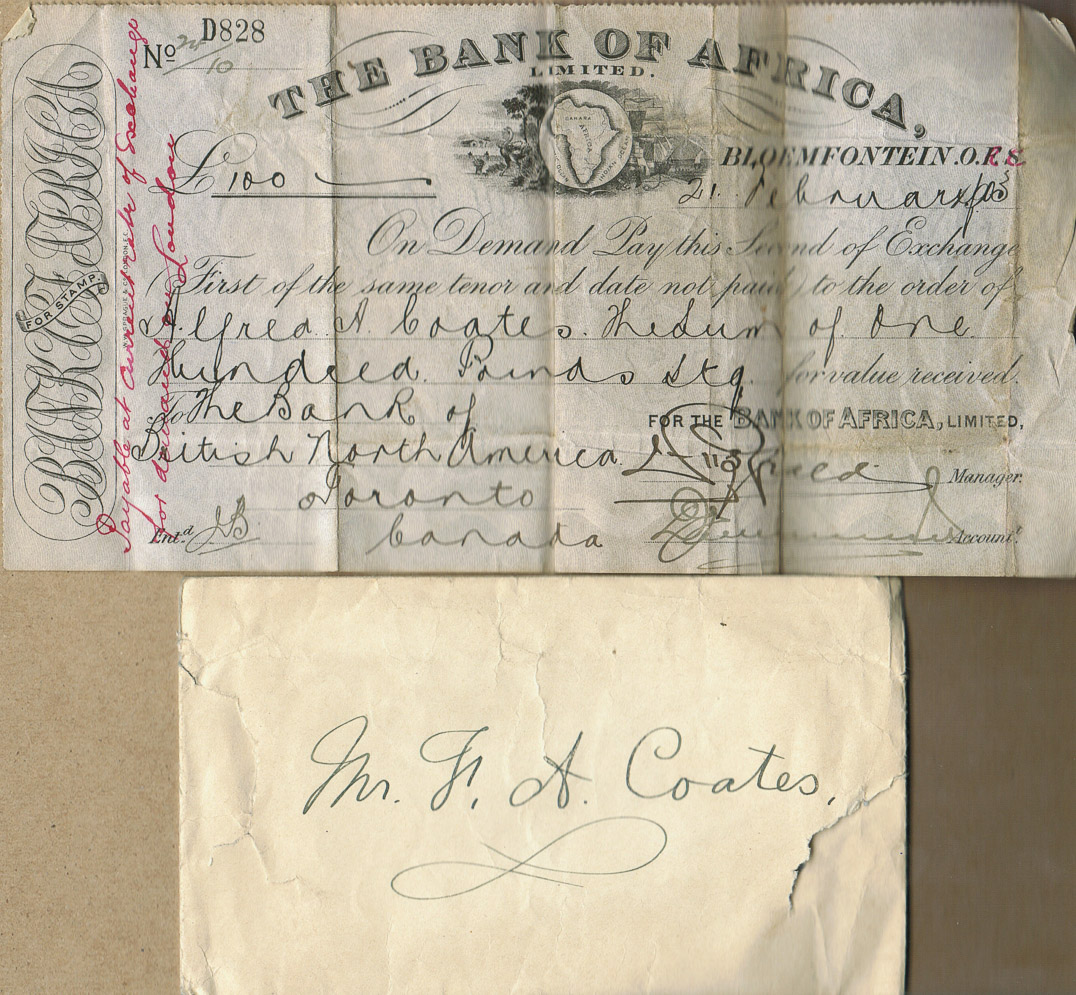 D828
No 24/10
THE BANK OF AFRICA,
LIMITED.
SAHARA
AFRICA
BLOEMFONTEIN.O.R.
£ 100
21. February /05
On Demand Pay this Second of Exchange
First of the same tenor and date not paid, to the order of
Alfred A. Coates. The Sum of One
Hundred Pounds Stg. for value received.
To The Bank of
FOR THE BANK OF AFRICA, LIMITED,
British North America.
Manager.
Toronto
Ent.d JB
Canada
Account.t
BANK OF AFRICA
FOR STAMP.
Payable at current rate of Exchange
for demand on London
Mr. F. A. Coates,